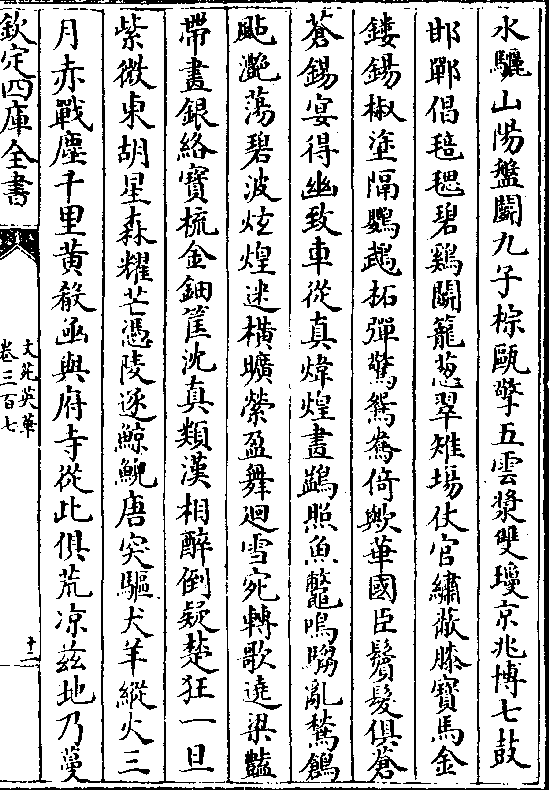 水驪山陽盤鬬九子粽甌擎五雲漿雙瓊京兆博七鼓
邯鄲倡毰毸碧鷄鬬籠葱翠雉場仗官繡蔽膝寶馬金
鏤鍚椒塗隔鸚鵡拓彈驚鴛鴦倚歟華國臣鬢髮俱蒼
蒼錫宴得幽致車從真煒煌畫鷁照魚鼈鳴騶亂鶖鶬
颭灧蕩碧波炫煌迷橫曠縈盈舞迴雪宛轉歌遶梁豔
帶畫銀絡寶梳金鈿筐沈真類漢相醉倒疑楚狂一旦
紫微東胡星森耀芒憑陵逐鯨鯢唐突驅犬羊縱火三
月赤戰塵千里黃殽函與府寺從此俱荒凉茲地乃蔓
欽定四庫全書
文苑英華
卷三百七
十二